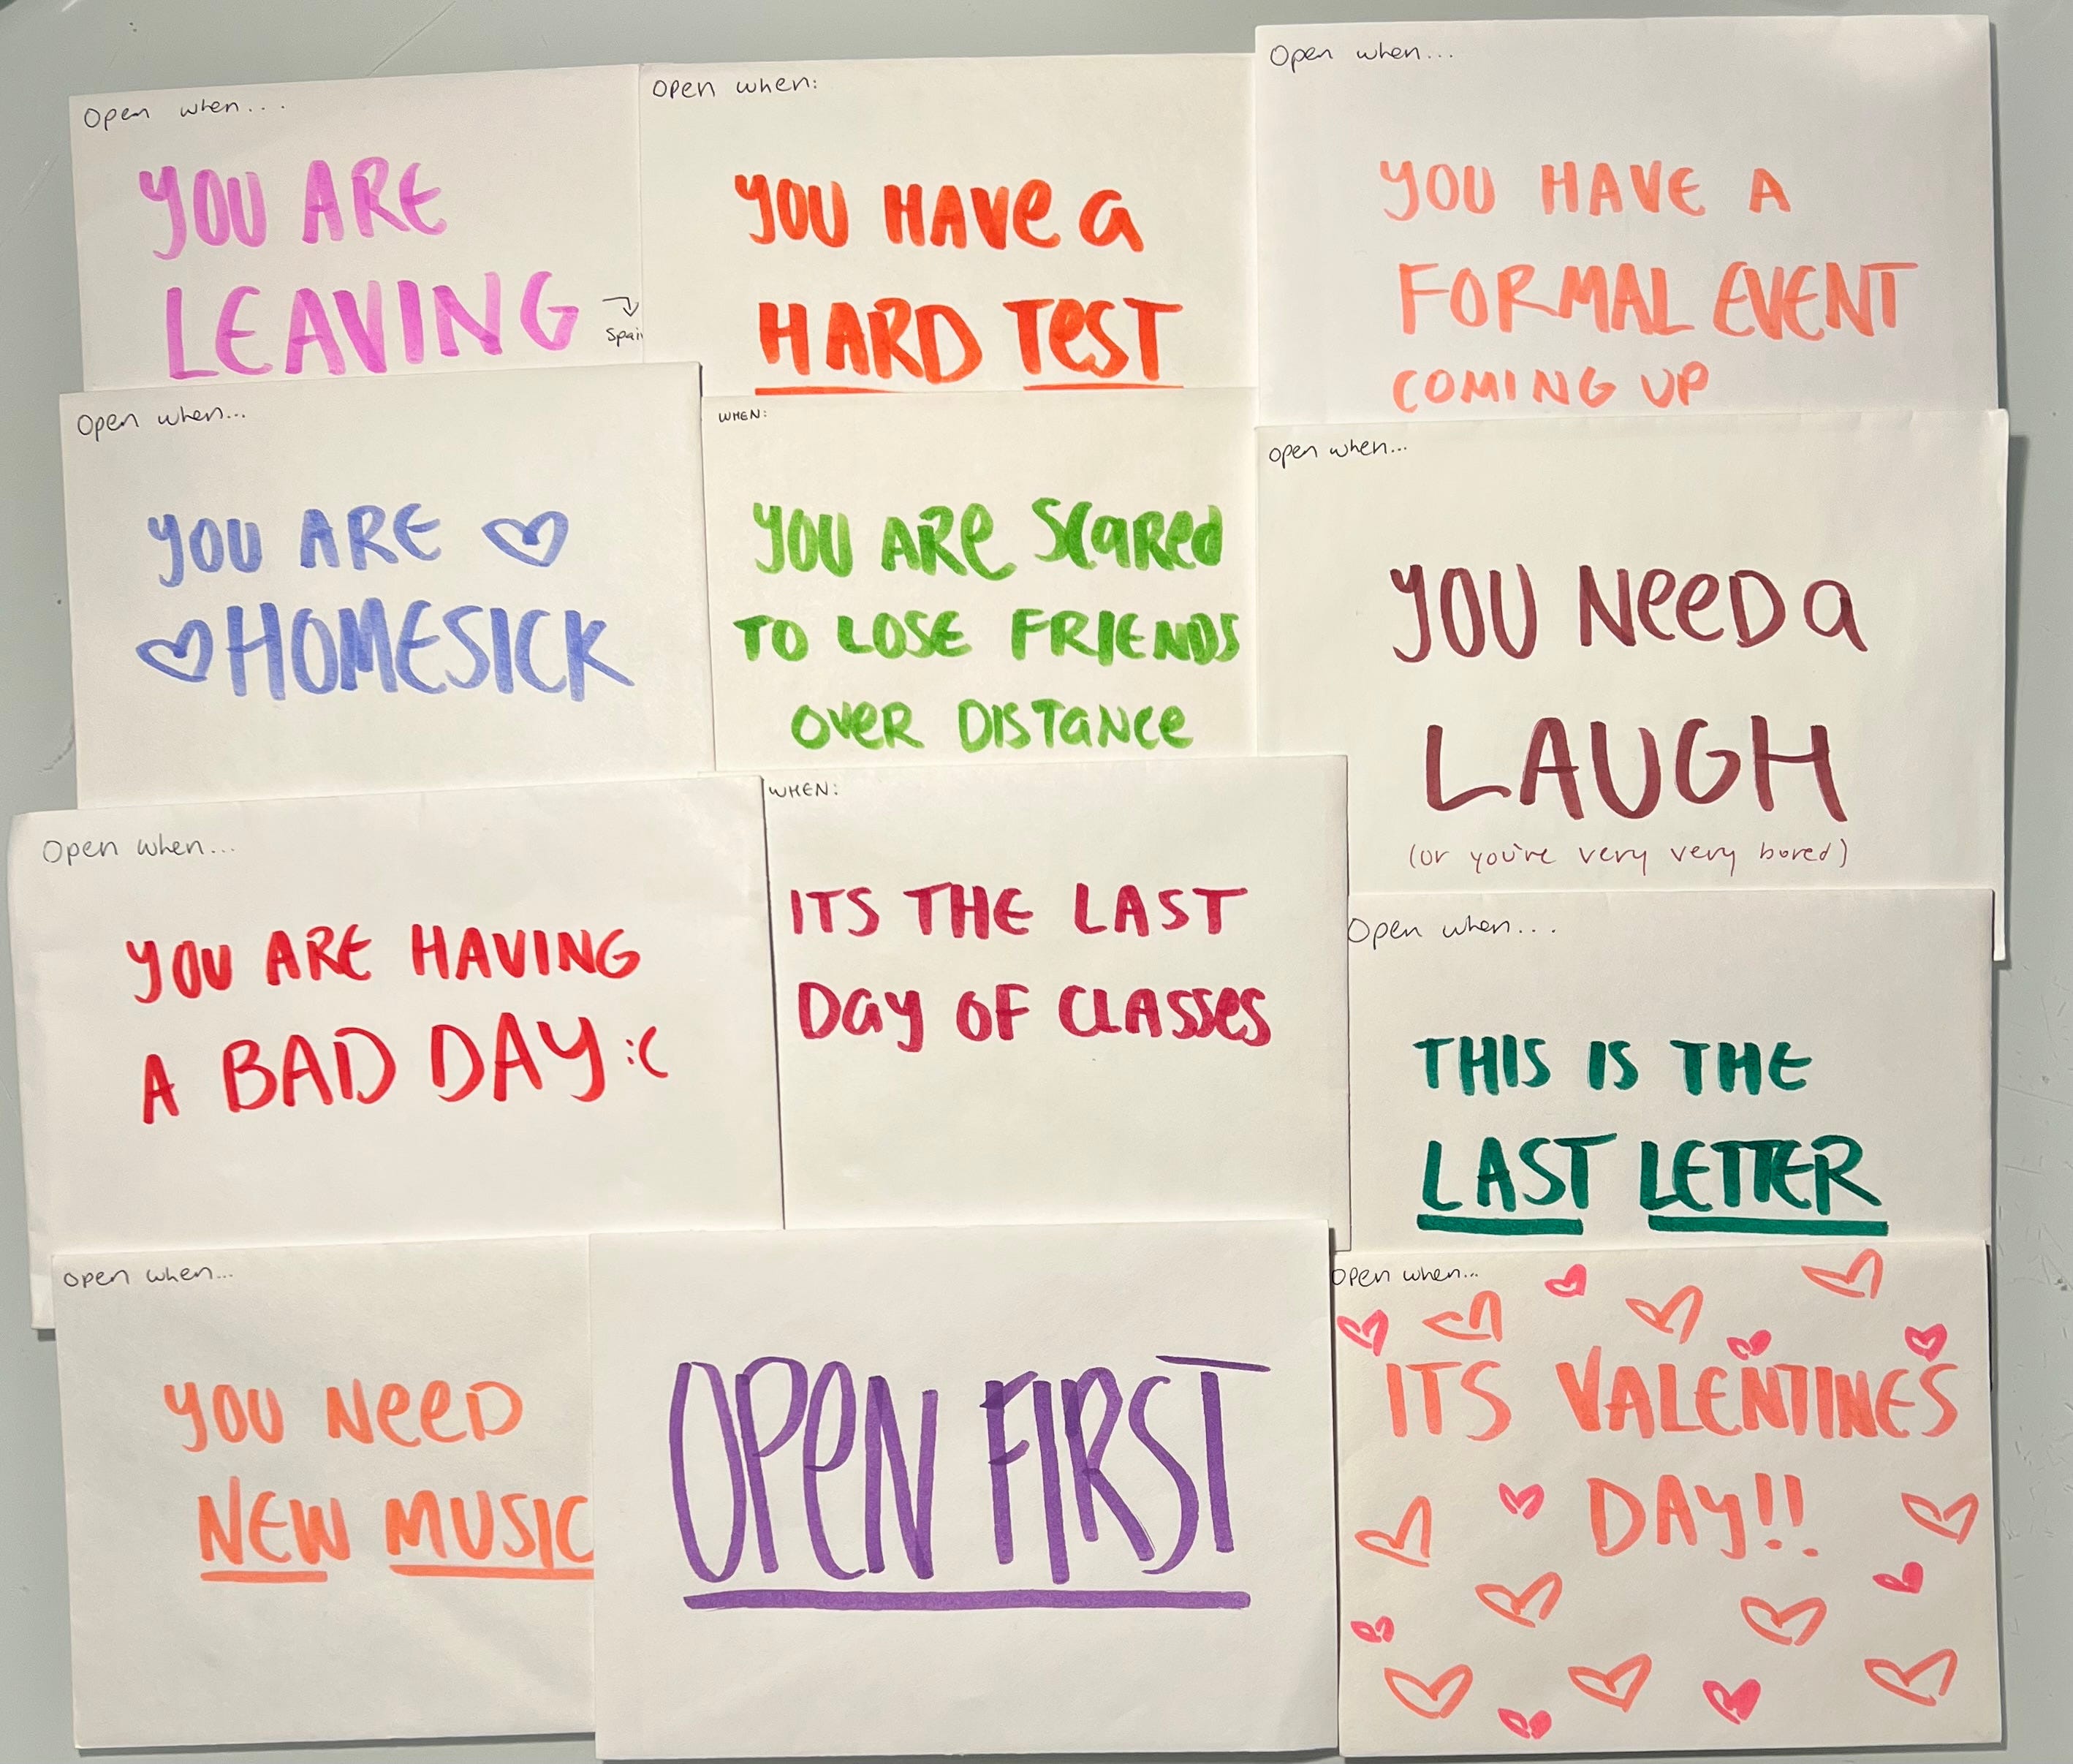 Open when...
YOU ARE
LEAVING
Open when:
YOU HAVE a
HARD TEST
Open when...
YOU HAVE A
FORMAL EVENT
COMING UP
Open when...
YOU ARE
HOMESICK
WHEN:
YOU ARE SCARED
TO LOSE FRIENDS
OVER DISTANCE
open when...
YOU NEED a
LAUGH
(or you're very very bored)
Open when...
YOU ARE HAVING
A BAD DAY :(
WHEN:
ITS THE LAST
DAY OF CLASSES
Open when...
THIS IS THE
LAST LETTER
open when...
YOU NEED
NEW MUSIC
OPEN FIRST
Open when...
ITS VALENTINES
DAY!!